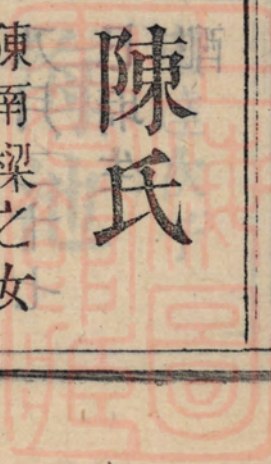 陳氏
陳南樑之女